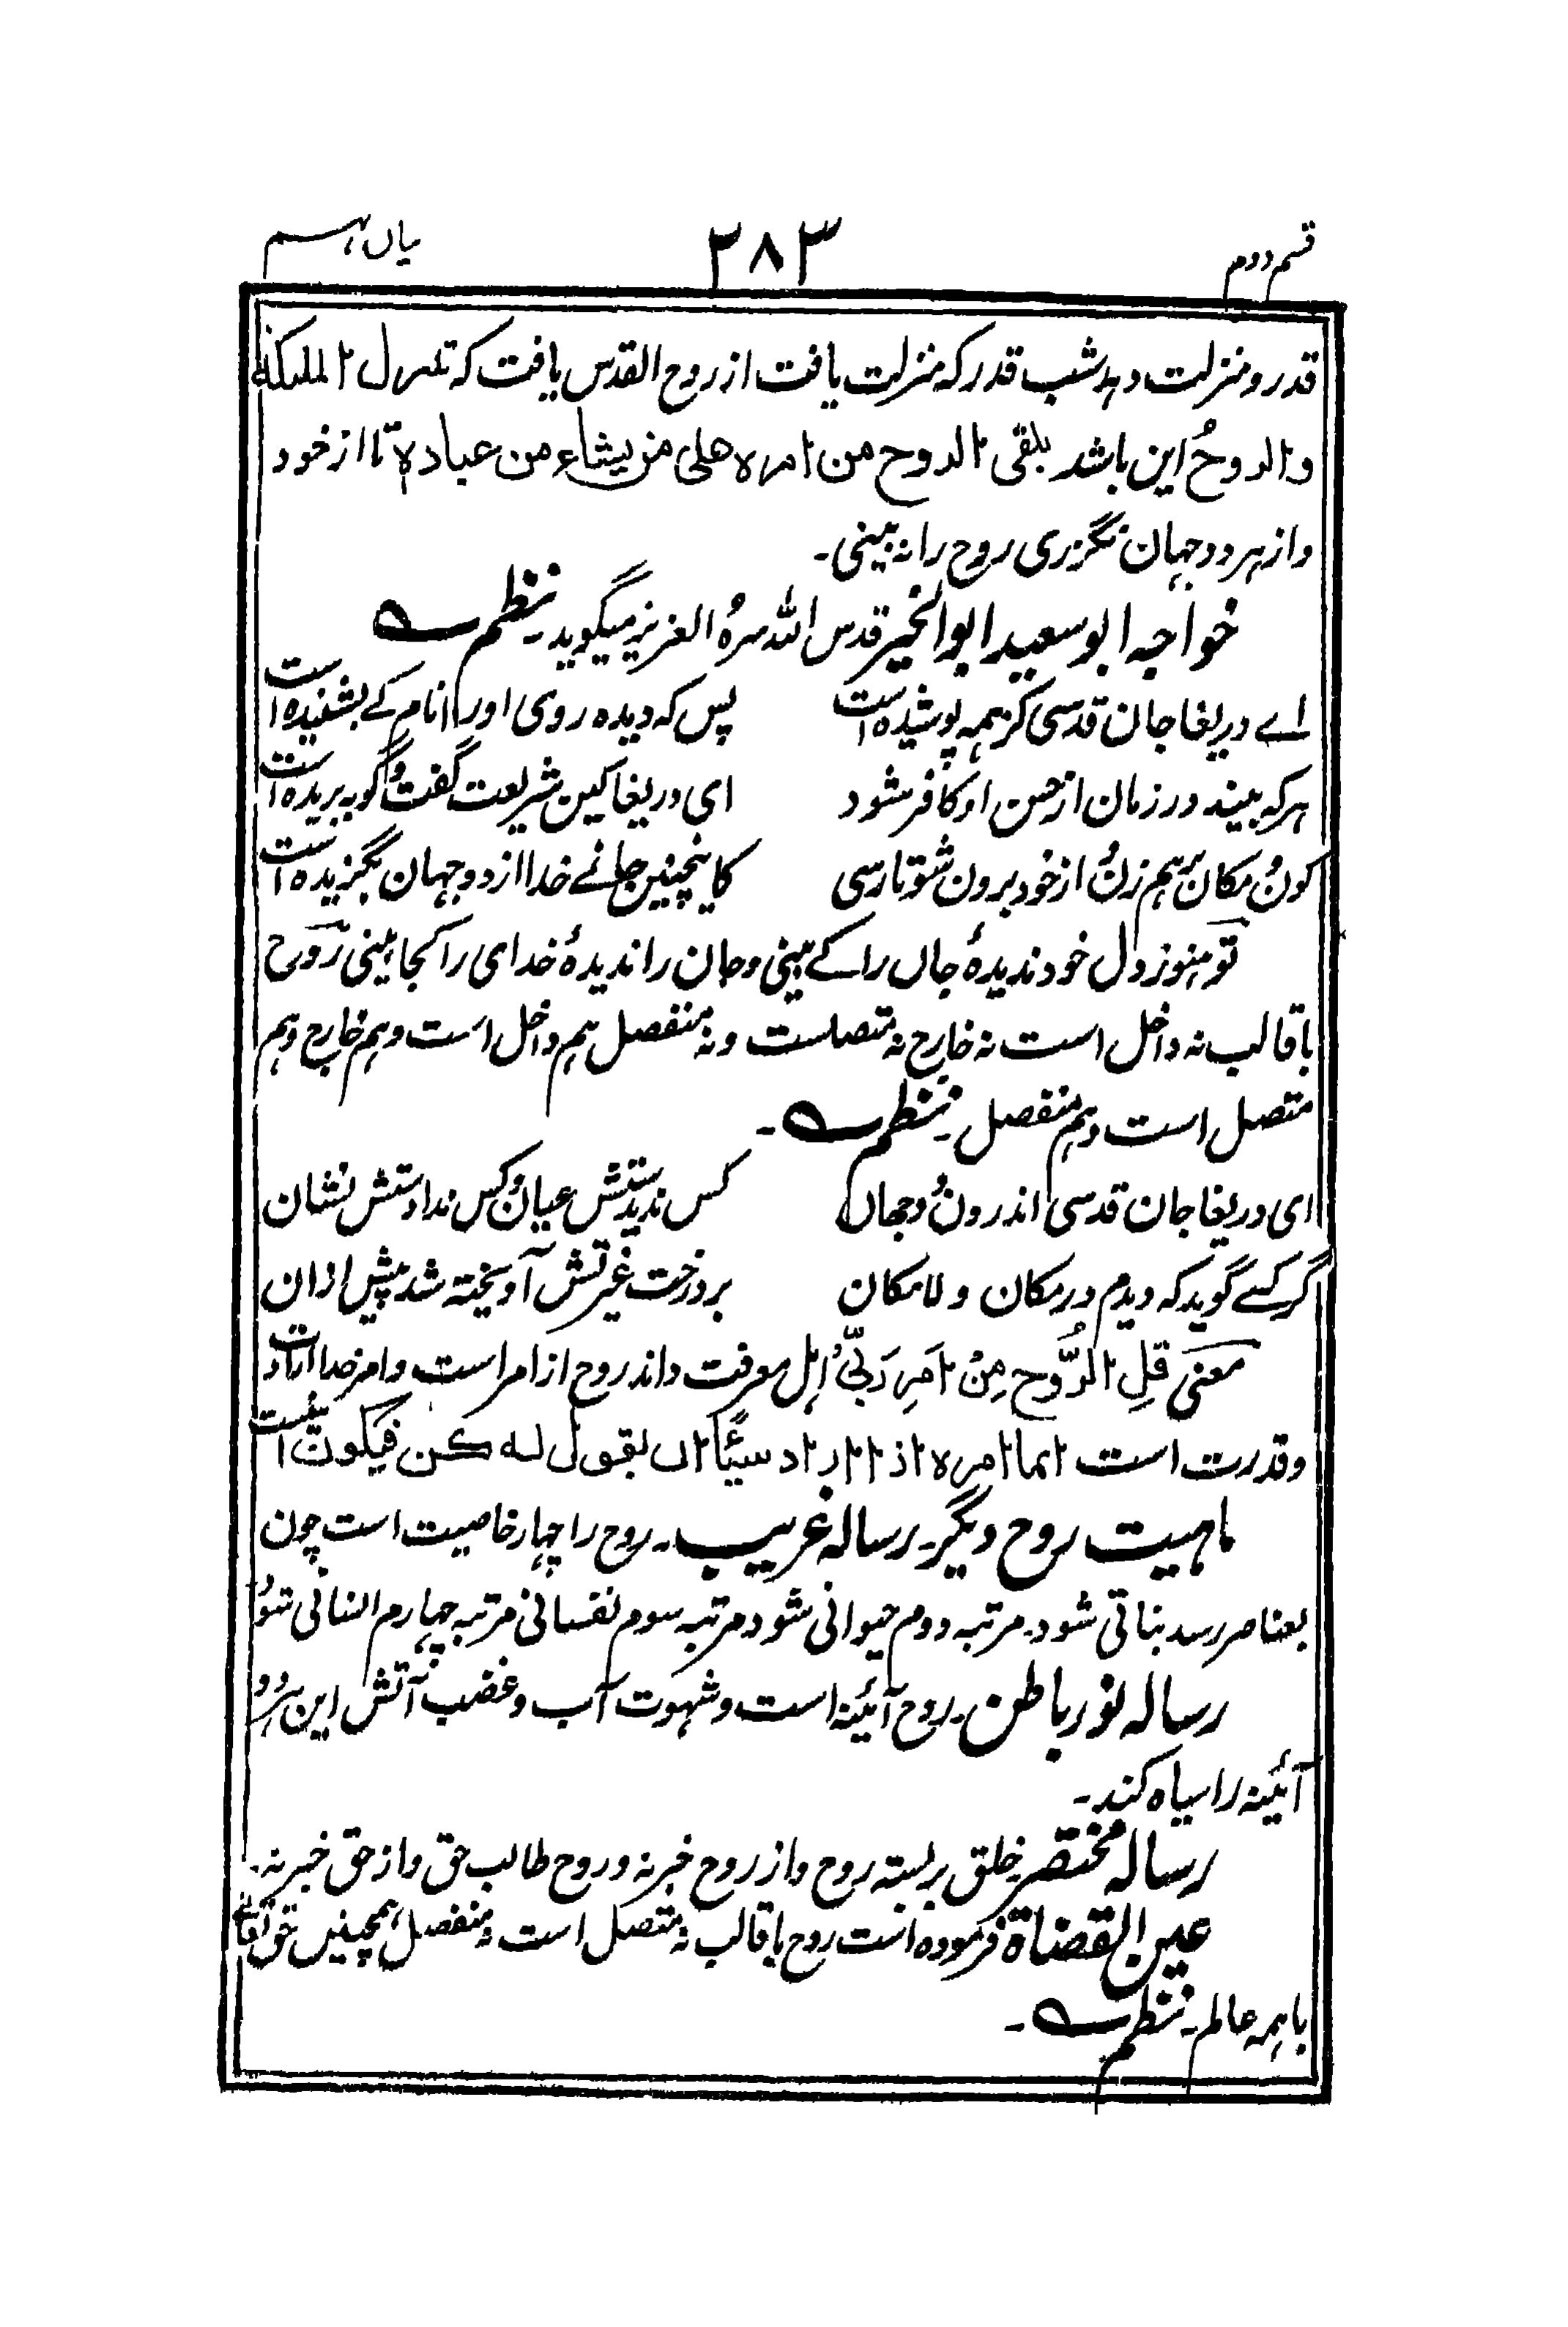 قسم دوم
۲۸۳
قدر و منزلت دہد شب قدر کہ منزلت یافت از روح القدس یافت کہ تنزل الملٰئکۃ
والروحُ این باشد یلقی الروح من امرہ علی من یشاء من عبادہ تا از خود
و از ہر دو جہان نگزری روح را نہ بینی۔
خواجہ ابو سعید ابو الخیر قدس اللہ سرہُ العزیز میگوید۔ نظم
اے دریغا جان قدسی کز ہمہ پوشیدہ است
پس کہ دیدہ روی او را نام کے بشنیدہ است
ہر کہ بیند در زمان از حسن او کافر شود
ای دریغا کین شریعت گفت و گو بہ بریدہ است
کون و مکان برہم زن و از خود برون شو تا رسی
کاینچنین جانے خدا از دو جہان بگزیدہ است
تو ہنوز دل خود ندیدۂ جاں را کے بینی و جان را ندیدۂ خدای را کجا بینی روح
با قالب نہ داخل است نہ خارج نہ متصلست و نہ منفصل ہم داخل است و ہم خارج و ہم
متصل است و ہم منفصل۔ نظم۔
ای دریغا جان قدسی اندرون دو جہاں
کس ندیدستش عیان و کس ندادستش نشان
گر کسے گوید کہ دیدم در مکان و لامکان
بر درخت غیرتش آویختہ شد پیش ازان
معنی قلِ الرُّوح مِنْ اَمرِ رَبِّی اہل معرفت داند روح از امر است و امر خدا ارادت
و قدرت است انما امرہ اذا اراد شیئًا ان یقول لہ کن فیکون اینست
ماہیت روح دیگر۔ رسالہ غریب۔ روح را چہار خاصیت است چون
بعناصر رسد نباتی شود۔ مرتبہ دوم حیوانی شود مرتبہ سوم نفسانی مرتبہ چہارم انسانی شود
رسالہ نور باطن۔ روح آئینہ است و شہوت آب و غضب آتش این ہر دو
آئینہ را سیاہ کند۔
رسالہ مختصر۔ خلق بر بستہ روح و از روح خبر نہ و روح طالب حق و از حق خبر نہ۔
عین القضاۃ فرمودہ است روح با قالب نہ متصل است نہ منفصل ہمچنیں حق تعالٰے
با ہمہ عالم۔ نظم۔